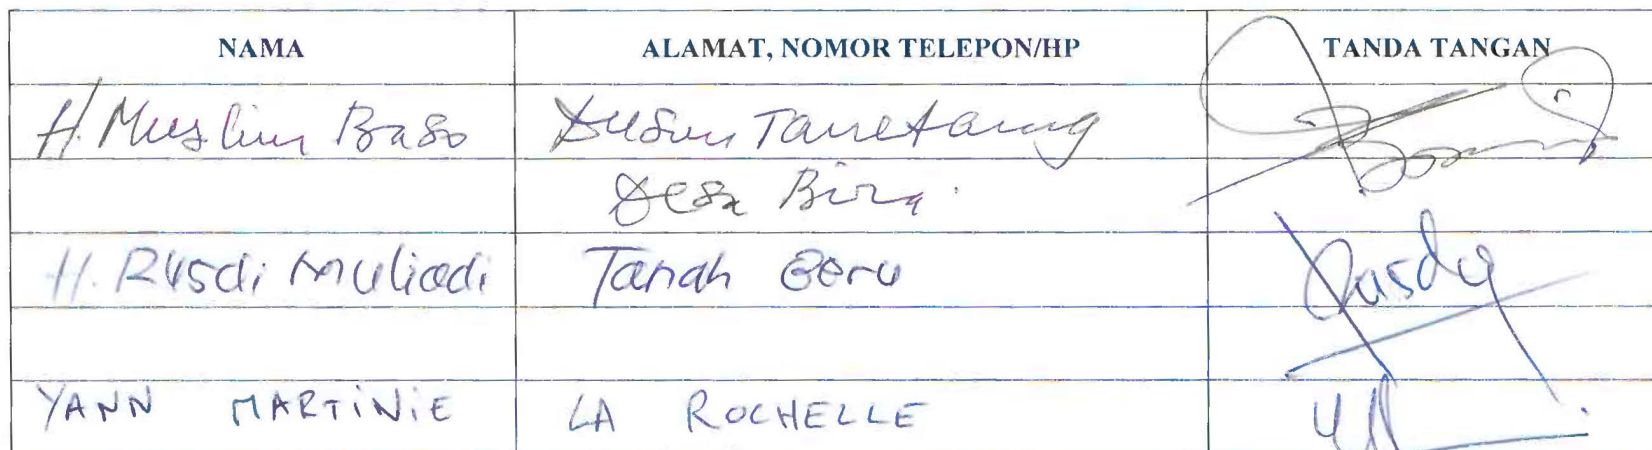 NAMA ALAMAT, NOMOR TELEPON/HP TANDA TANGAN
H. Muslim Baso Dusun Tanetang
Desa Bira.
H. Rusdi Muliadi Tanah Beru Rusdy
YANN MARTINIE LA ROCHELLE